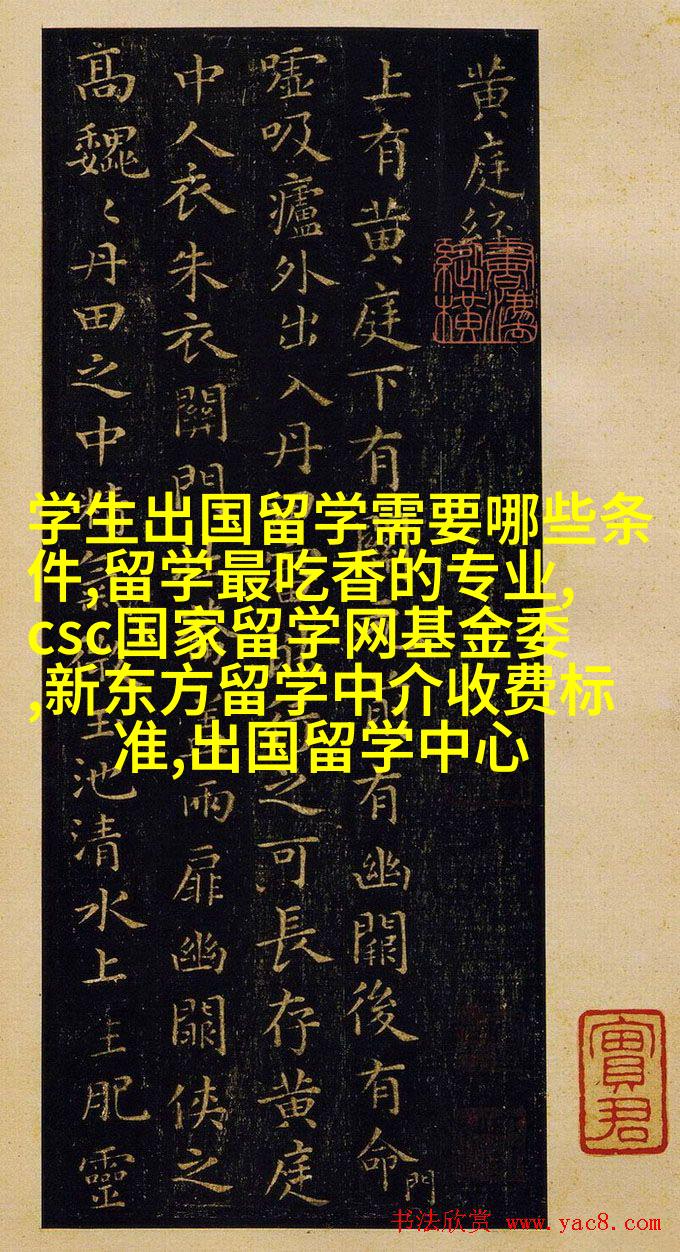 黄庭經
上有黄庭下有 有幽闕後有命門
嘘吸廬外出入丹 之可長存黄庭
中人衣朱衣關門 兩扉幽闕侠之
高巍〻丹田之中精 池清水上生肥靈
学生出国留学需要哪些条
件,留学最吃香的专业,
csc国家留学网基金委
,新东方留学中介收费标
准,出国留学中心
书法欣赏 www.yac8.com